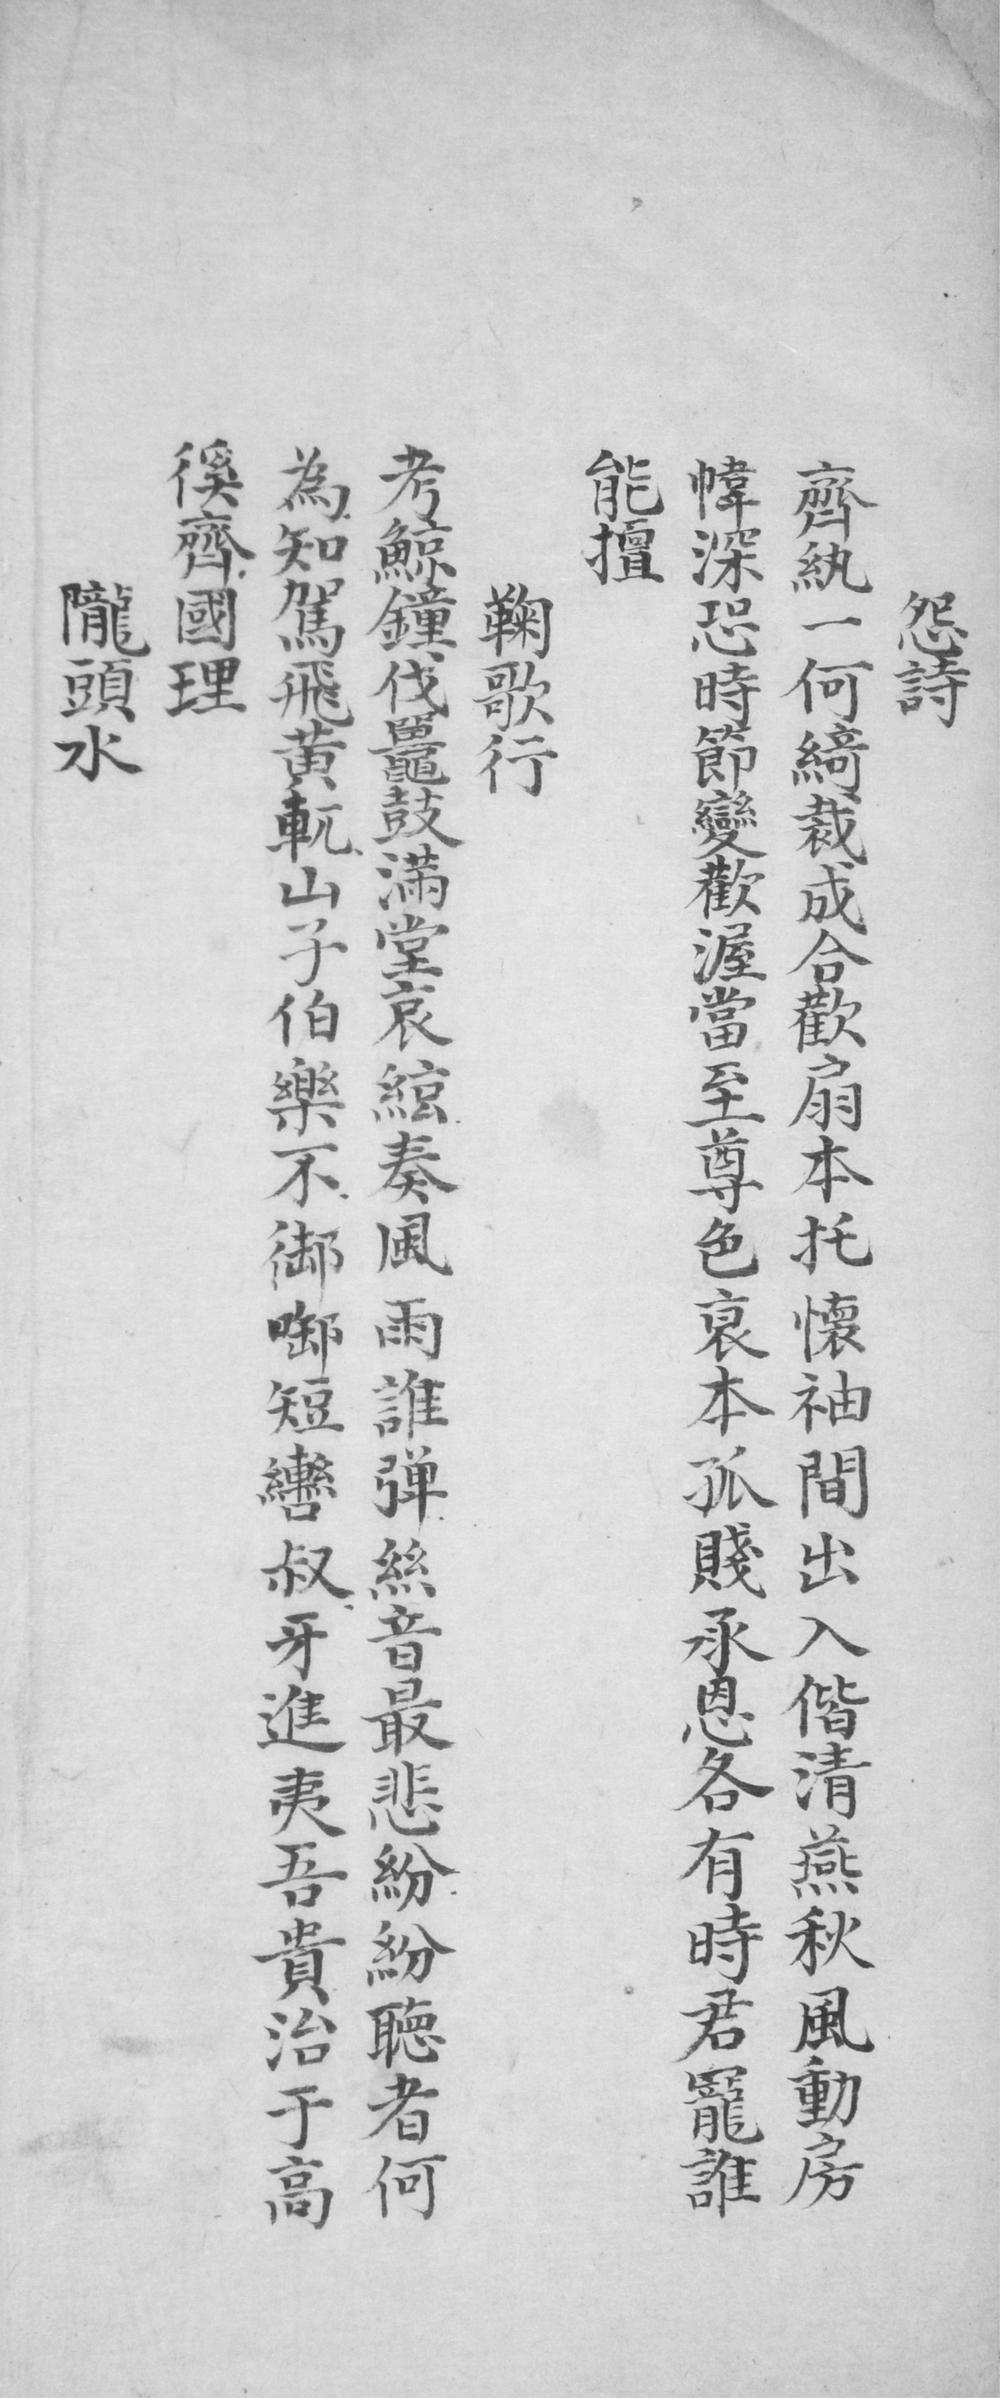 怨詩
齊紈一何綺裁成合歡扇本托懷袖間出入偕清燕秋風動房
幃深恐時節變歡渥當至尊色衰本孤賤承恩各有時君寵誰
能擅
鞠歌行
考鯨鐘伐鼉鼓滿堂哀絃奏風雨誰弹絲音最悲紛紛聽者何
為知駕飛黃軏山子伯樂不御啣短轡叔牙進夷吾貴治于高
徯齊國理
隴頭水